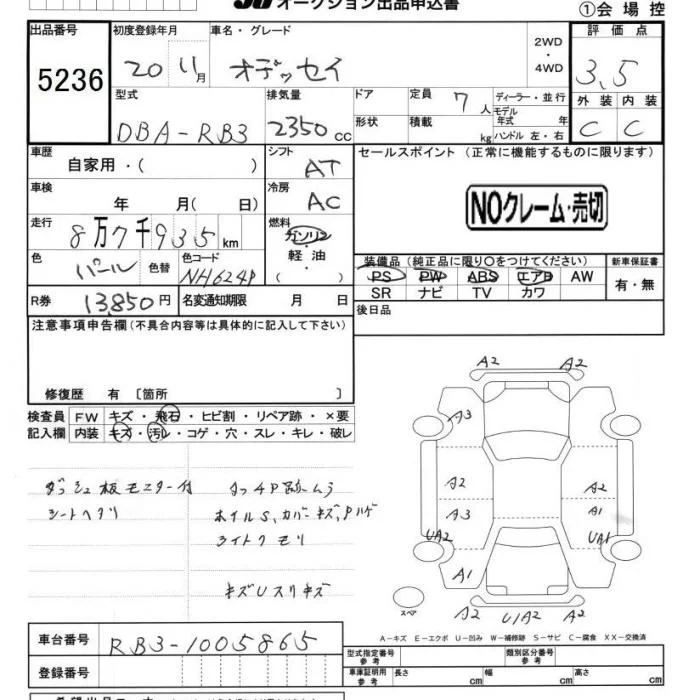 オークション出品申込書
①会場控
出品番号 初度登録年月 車名・グレード 2WD・4WD 評価点
5236 20 11月 オデッセイ 3.5
型式 排気量 ドア 定員 7人 ディーラー・並行 外装 内装
DBA-RB3 2350cc 形状 積載 kg モデル年式 年 ハンドル 左・右 C C
車歴 シフト セールスポイント (正常に機能するものに限ります)
自家用・( ) AT
車検 冷房
年 月( 日) AC
NOクレーム・売切
走行 燃料
8万7千935km ガソリン
軽油
( )
装備品(純正品に限り○をつけてください) 新車保証書
色 パール 色替 色コード NH624P
PS PW ABS エアB AW 有・無
SR ナビ TV カワ
R券 13,850円 名変通知期限 月 日 後日品
注意事項申告欄(不具合内容等は具体的に記入して下さい)
修復歴 有 〔箇所 〕
検査員 FW キズ・飛石・ヒビ割・リペア跡・×要
記入欄 内装 キズ・汚レ・コゲ・穴・スレ・キレ・破レ
ダッシュ板モニター付
シートヘタリ
ホイルS、カバーキズ、Pハゲ
ライトクモリ
キズUスリキズ
A2 A2
A3
A2 A2
A3 A1
UA2 UA1
A1
スペア
A2 U1A2 A2
A-キズ E-エクボ U-凹み W-補修跡 S-サビ C-腐食 XX-交換済
車台番号 RB3-1005865
型式指定番号 参考 類別区分番号 参考
登録番号
車庫証明用 参考 長さ cm 幅 cm 高さ cm